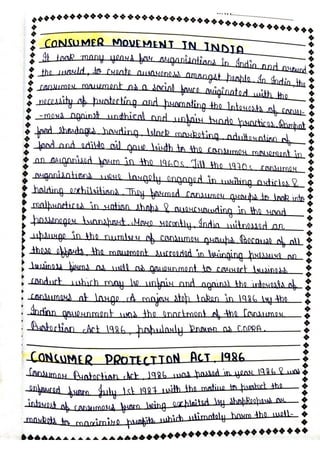 CONSUMER MOVEMENT IN INDIA
It took many years for organisations in India and around
the world, to create awareness amongst people. In India, the
consumer movement as a social force originated with the
necessity of protecting and promoting the Interests of consu-
-mers against unethical and unfair trade practices. Rampant
food shortages hoarding, black marketing, adulteration of
food and edible oil gave birth to the consumer movement in
an organised form in the 1960s. Till the 1970s consumer
organisations were largely engaged in writing articles &
holding exhibitions. They formed consumer groups to look into
malpractices in ration shops & overcrowding in the road
passenger transport. More recently, India witnessed an
upsurge in the number of consumer groups. Because of all
these efforts, the movement succeeded in bringing pressure on
business firms as well as government to correct business
conduct which may be unfair and against the interests of
consumers at large. A major step taken in 1986 by the
Indian government was the enactment of the Consumer
Protection Act 1986, popularly known as COPRA.
CONSUMER PROTECTION ACT, 1986
Consumer Protection Act, 1986 was passed in year 1986 & was
enforced from July 1st 1987 with the motive to protect the
interest of consumers from being exploited by shopkeepers or
markets to maximize profits which ultimately harm the well-